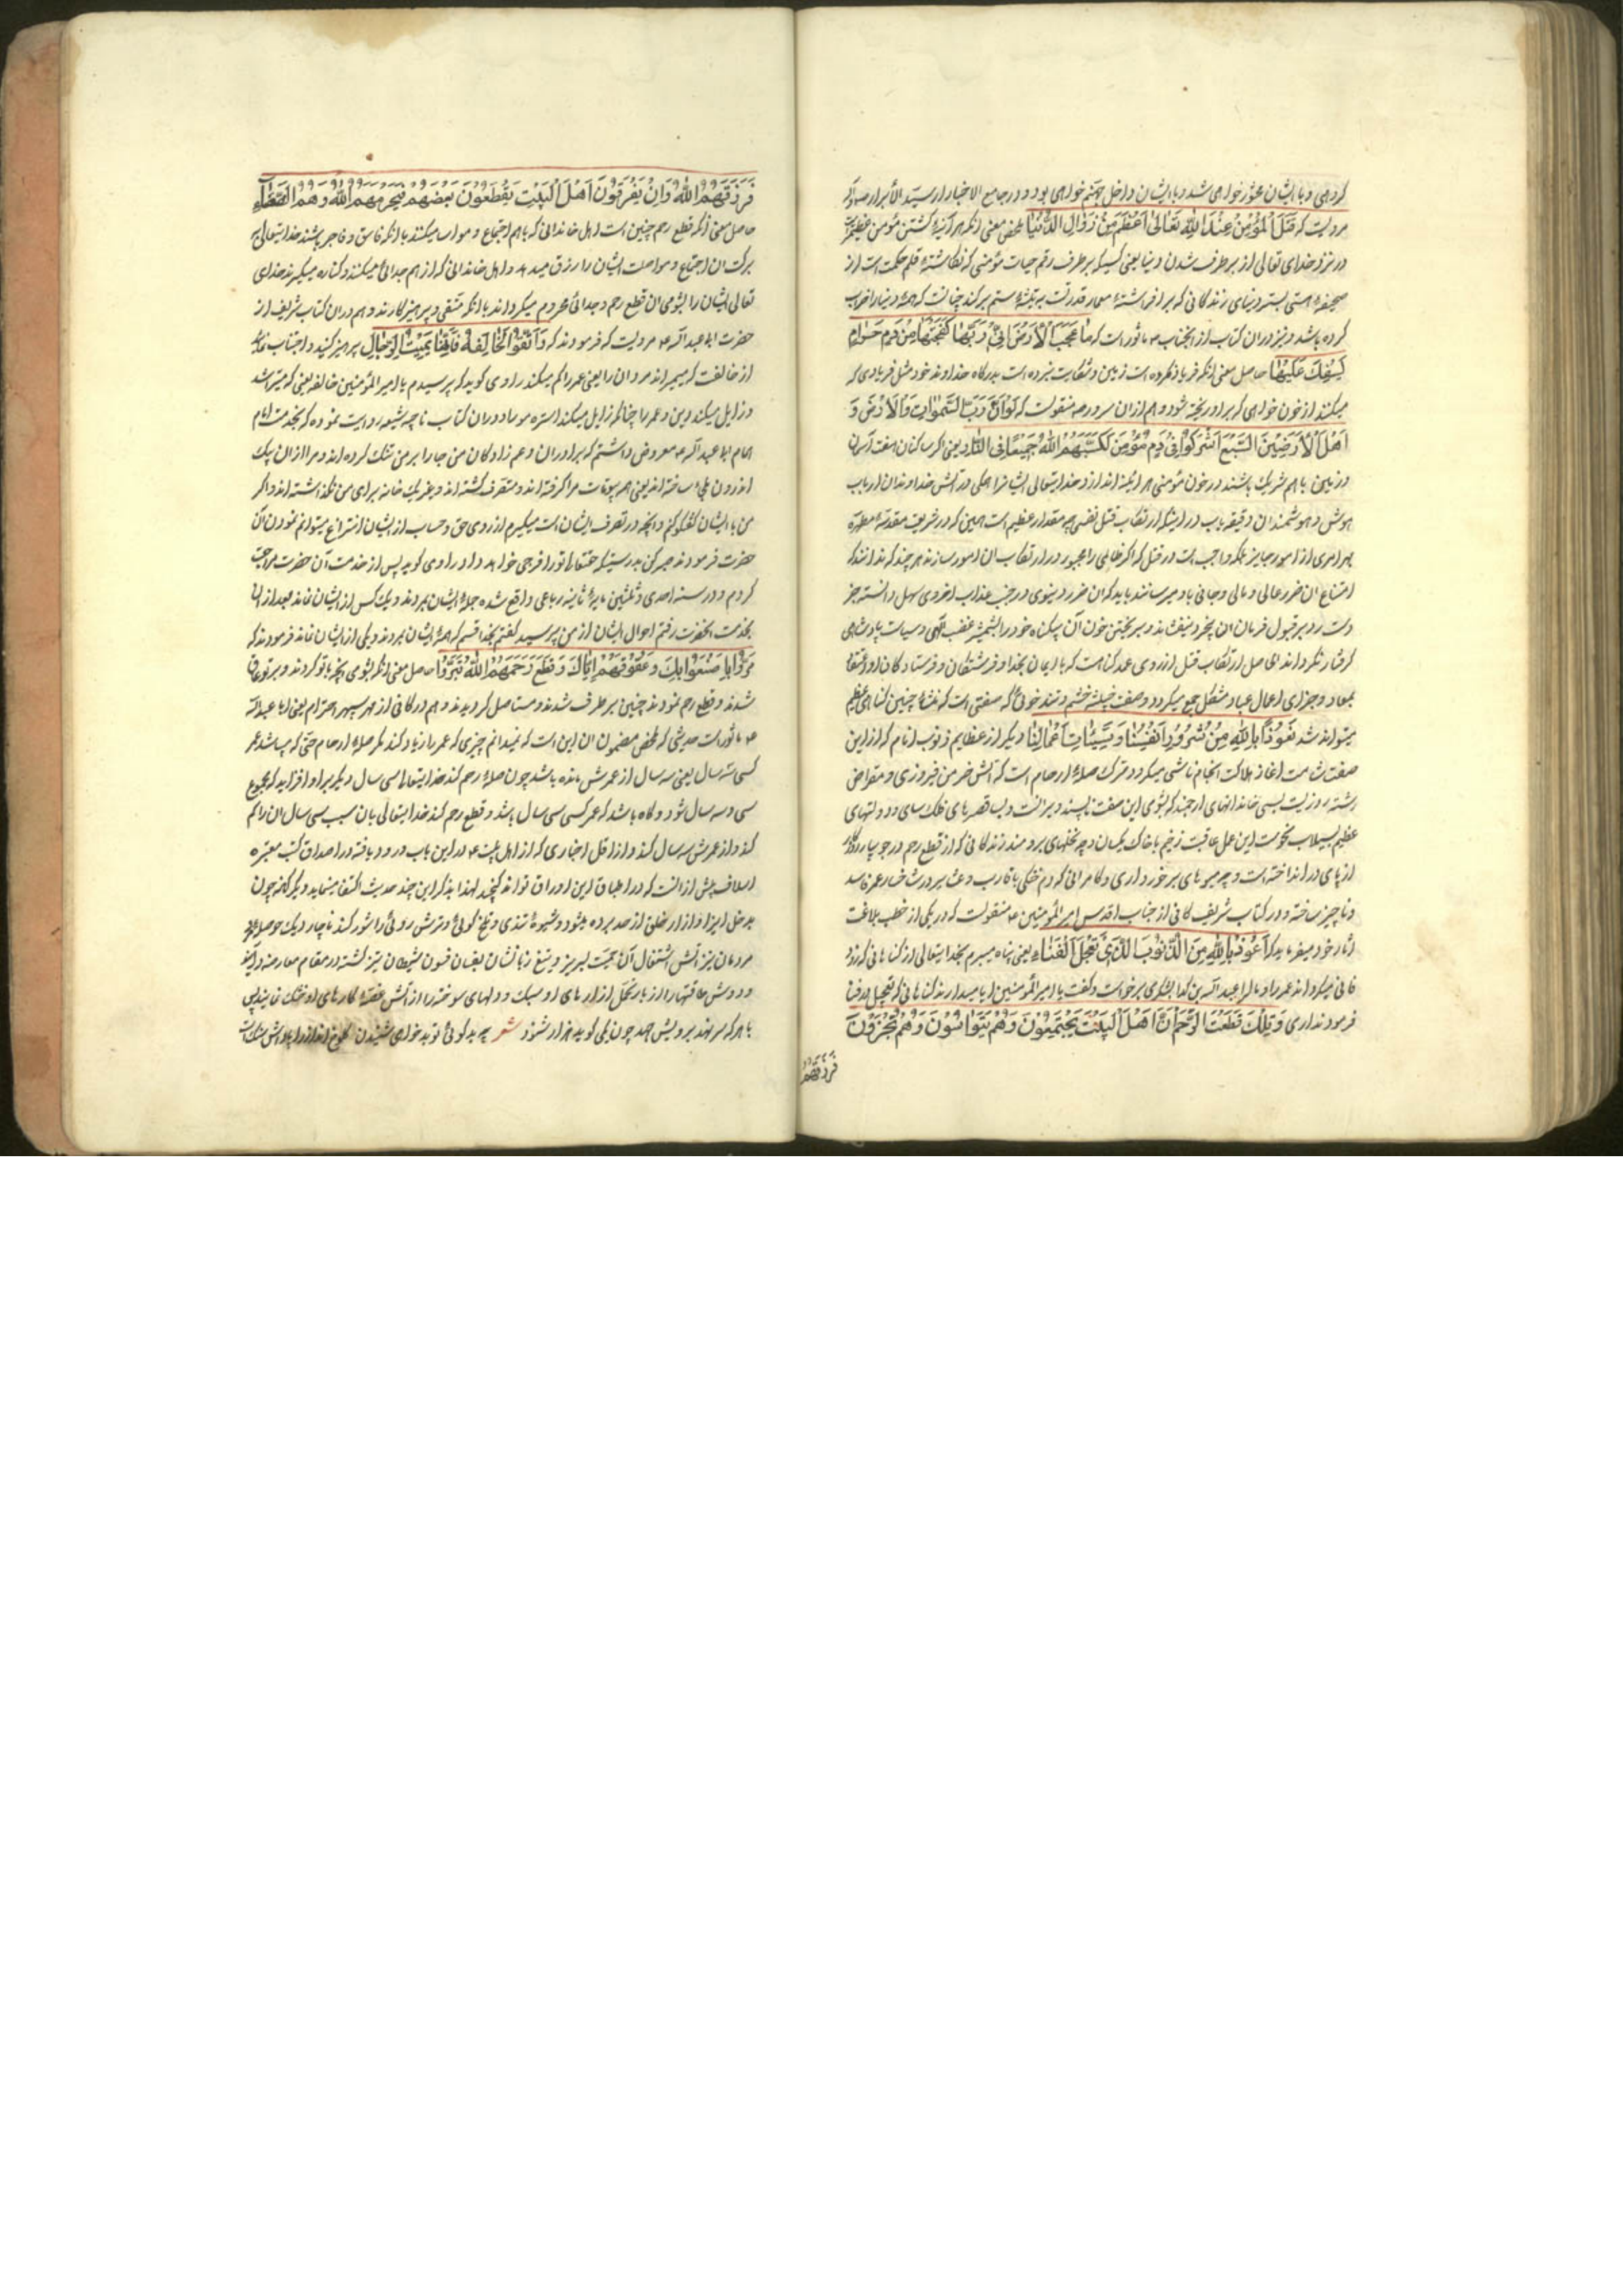 کردهی و با ایشان محشور خواهی شد و با ایشان داخل جهنم خواهی بود و در جامع الاخبار از سید الأبرار
مرویست که قَتْلُ الْمُؤْمِنِ عِنْدَ اللهِ تَعَالٰی اَعْظَمُ مِنْ زَوَالِ الدُّنْیَا ملخص معنی انکه هر آینه کشتن مؤمن عظیمتر
در نزد خدای تعالی از بر طرف شدن دنیا یعنی کسیکه بر طرف رقم حیات مؤمنی که نکاشتهٔ قلم حکمت است از
صحیفهٔ هستی بسترد بنای زندکانی که بر افراشتهٔ معمار قدرتست به تیشهٔ ستم بر کند چنانست که همهٔ دنیا را خراب
کرده باشد و نیز در ان کتاب از انجناب ماثور است که مَا عَجَّتِ الْاَرْضُ اِلٰی رَبِّهَا کَعَجَّتِهَا مِنْ دَمٍ حَرَامٍ
یُسْفَكُ عَلَیْهَا حاصل معنی انکه فریاد نکرده است زمین و شکایت نبرده است بدرکاه خداوند خود مثل فریادی که
میکند از خون حرامی که بر او ریخته شود و هم از ان سرور منقولست که لَوْ اَنَّ رَبَّ السَّمٰوَاتِ وَالْاَرْضِ وَ
اَهْلَ الْاَرَضِیْنَ السَّبْعِ اشْتَرَکُوْا فِیْ دَمِ مُؤْمِنٍ لَکَبَّهُمُ اللهُ جَمِیْعًا فِی النَّارِ یعنی اکر ساکنان هفت آسمان
و زمین با هم شریك باشند در خون مؤمنی هر اینه اندازد خدایتعالی ایشانرا همکی در آتش خداوندان ارباب
هوش و هوشمندان دقیقه یاب در اینکه ارتکاب قتل نفس چه مقدار عظیم است همین که در شریعت مقدسهٔ مطهره
بهر امری از امور جایز بلکه واجب است در قتل که اکر ظالمی را مجبور در ارتکاب ان امور سازند هر چند که بدانند که
امتناع ان ضرر حالی و مالی و جانی باو میرسانند باید که ان ضرر دنیوی در جنب عذاب اخروی سهل دانسته جز
دست رد بر قبول فرمان ان بیخرد ننهد و بریختن خون آن بیکناه خود را بشمشیر غضب الهی و سیاست پادشاهی
کرفتار نکرداند حاصل ارتکاب قتل از روی عمد کناهست که با ایمان بخدا و فرشتکان و فرستادکان او و اعتقاد
بمعاد و جزای اعمال عباد مشکل جمع میکردد و صفت خبیثهٔ خشم و تند خوئی که صفتی است که منشأ چنین کناهی عظیم
میتواند شد نَعُوْذُ بِاللهِ مِنْ شُرُوْرِ اَنْفُسِنَا وَ سَیِّئَاتِ اَعْمَالِنَا دیکر از عظایم ذنوب انام که از این
صفت شامت اغاز هلاکت انجام ناشی میکردد ترك صلهٔ ارحام است که آتش خرمن فیروزی و مقراض
رشتهٔ روزیست بسی خاندانهای ارجمند که بشومی این صفت ناپسند ویرانست و بسا قصرهای فلك سای و دولتهای
عظیم بسیلاب نحوست این عمل عاقبت وخیم با خاك یکسان و چه نخلهای برومند زندکانی که از قطع رحم در جویبار
از پای در انداخته است و چه میوهای برخورداری و کامرانی که دم خنکی با قارب و عشایر درشت خسار عمر فاسد
و ناچیز ساخته و در کتاب شریف کافی از جناب اقدس امیر المؤمنین منقولست که در یکی از خطب بلاغت
اثار خود میفرماید که اَعُوْذُ بِاللهِ مِنَ الذُّنُوْبِ الَّتِیْ تُعَجِّلُ الْفَنَاءَ یعنی پناه میبرم بخدایتعالی از کناهانی که زود
فانی میکرداند عمر را و عبد الله بن کوا یشکری برخواست و کفت یا امیر المؤمنین ایا میدارند کناهانی که تعجیل در فنا
فرمودند اری وَیْلَكَ قَطِیْعَةُ الرَّحِمِ اِنَّ اَهْلَ الْبَیْتِ یَجْتَمِعُوْنَ وَ هُمْ یَتَوَاسَوْنَ وَ هُمْ فَجَرَةٌ
فَرَزَقَهُمُ
فَرَزَقَهُمُ اللهُ وَ اِنْ یَفْرَقُوْنَ اَهْلُ الْبَیْتِ یَقْطَعُوْنَ بَعْضَهُمْ فَیَحْرِمُهُمُ اللهُ وَ هُمْ
حاصل معنی انکه قطع رحم چنین است اهل خاندانی که با هم اجتماع و مواسات میکنند با انکه فاسق و فاجر باشند خدایتعالی به
برکت ان اجتماع و مواصلت ایشان را رزق میدهد و اهل خاندانی که از هم جدائی میکنند و کناره میکیرند خدای
تعالی ایشان را بشومی ان قطع رحم و جدائی محروم میکرداند با انکه متقی و پرهیزکارند و هم در ان کتاب شریف از
حضرت ابا عبد الله مرویست که فرمودند که وَ اتَّقُوا الْحَالِقَةَ فَاِنَّهَا تُمِیْتُ الرِّجَالَ پرهیز کنید و اجتناب نمائید
از حالقه که میمیراند مردان را یعنی عمر را کم میکند راوی کوید که پرسیدم یا امیر المؤمنین حالقه یعنی که میتراشد
و زایل میکند دین و عمر را چنانکه زایل میکند استره مو را و در ان کتاب مروی شیعه روایت نموده که بخدمت امام
همام ابا عبد الله معروض داشتم که برادران و عم زادکان من جا را بر من تنك کرده اند و مرا از ان یك
اندرون ساخته اند یعنی همه بیوتات مرا کرفته اند و متصرف کشته اند و بغیر یك خانه برای من نکذاشته اند و اکر
من با ایشان کفتکو کنم و انچه در تصرف ایشان است میکیرم از روی حق و حساب از ایشان انتزاع میتوانم نمود ان
حضرت فرمودند صبر کن بدرستیکه حقتعالی تو را فرجی خواهد داد راوی کوید پس از خدمت آن حضرت مراجعت
کردم و در سنه احدی و ثلثین مایة و بائی واقع شده جملهٔ ایشان بمردند و یك کس از ایشان نماند بعد از ان
بخدمت انحضرت رفتم احوال ایشان از من پرسید کفتم بخدا قسم که همهٔ ایشان بمردند و یکی از ایشان نماند فرمودند که
بِمَا صَنَعُوْا بِكَ وَ عُقُوْقِهِمْ اِیَّاكَ وَ قَطْعِ رَحِمِهِمْ حاصل معنی انکه بشومی انچه با تو کردند و بر تو عاق
شدند و قطع رحم نمودند چنین بر طرف شدند و مستاصل کردیدند و هم در کافی از مهر سپهر احترام یعنی ابا عبد الله
ماثور است حدیثی که ملخص مضمون ان این است که نمیدانم چیزی که عمر را زیاد کند مکر صلهٔ ارحام حتی که میباشد عمر
کسی سه سال یعنی سه سال از عمرش مانده باشد چون صلهٔ رحم کند خدایتعالی سی سال دیکر بر او افزاید که مجموع
سی و سه سال شود و کاه باشد که عمر کسی سی سال باشد و قطع رحم کند خدایتعالی بان سبب سی سال ان را کم
کند و از عمرش سه سال کند و از اقل اخباری که از اهل بیت در این باب درود یافته در اصداق کتب معتبره
اسلاف بیش از انست که در اطباق این اوراق تواند کنجید لهذا بذکر این چند حدیث اکتفا مینماید و دیکر انکه چون
مدخل ایزا و ازار خلق از حد برده میشود و شیوهٔ تندی و تلخ کوئی و ترش روئی را شور کند ناچار دیك حوصلهٔ
مردمان نیز آتش اشتغال آتا بحمیت لبریز و تیغ زبانشان بفسان فسون شیطان تیز کشته در مقام معارضه در آیند
و دوش طاقتها را از بار تحمل ازارهای او سبك و دلهای سوخته را از آتش غصهٔ کارهای او خنك نمایند
با هر که سر نهد بر ویش چون یکی کوید هزار شنود شعر چه بد کوئی تو بد خواهی شنیدن کلوخ انداز را پاداش سنك است